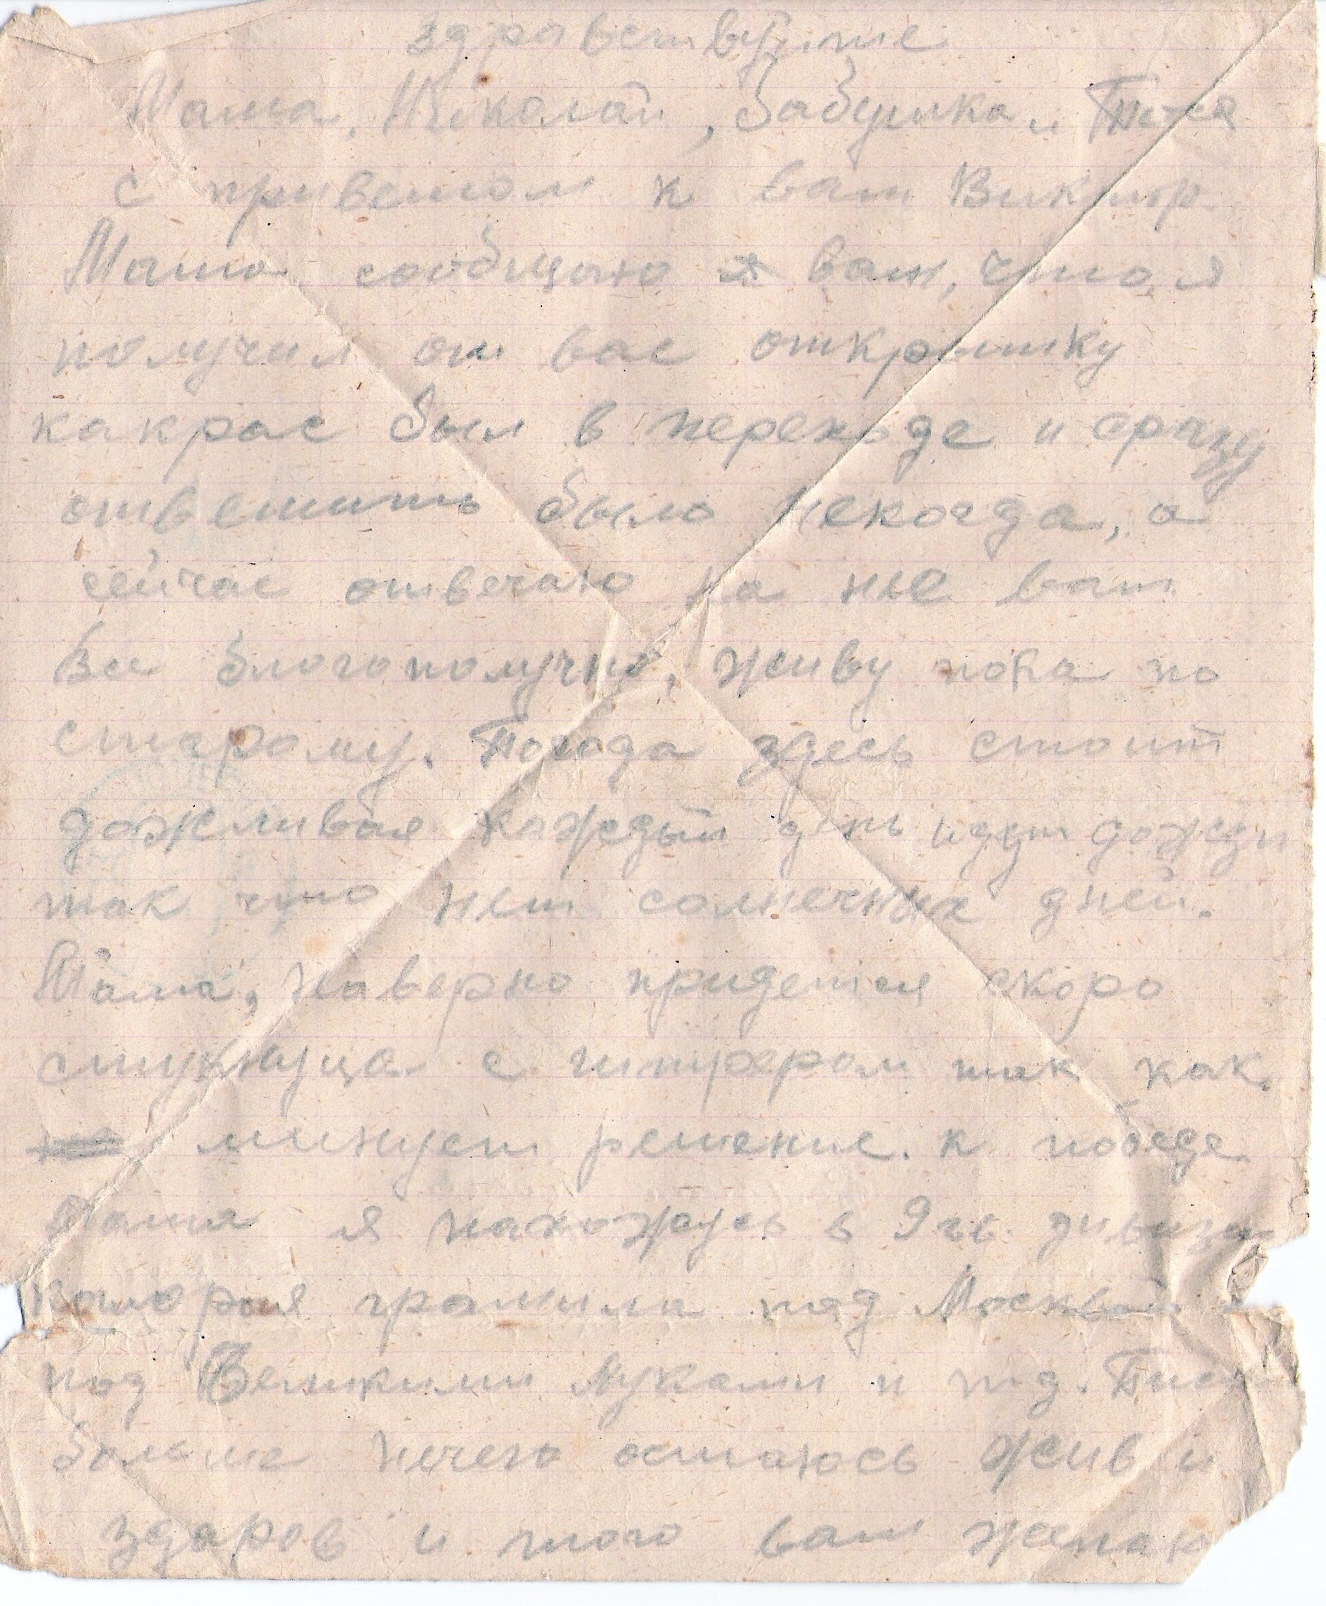 здравствуйте
Мама, Николай, бабушка и Тося
с приветом к вам Виктор
Мама сообщаю я вам, что я
получил от вас открытку
какрас был в переходе и сразу
ответить было некогда, а
сейчас отвечаю на нее вам
все благополучно, живу пока по
старому. Погода здесь стоит
дожливая каждый день идут дожди
так что нет солнечных дней.
Мама, наверно придется скоро
стукнуца с гитлером так как
минует решение к победе
Мама я нахожусь в 9 гв. дивизи
которая громила под Москвой
под Великими Луками и т д.
больше нечего остаюсь жив и
здаров и того вам желаю